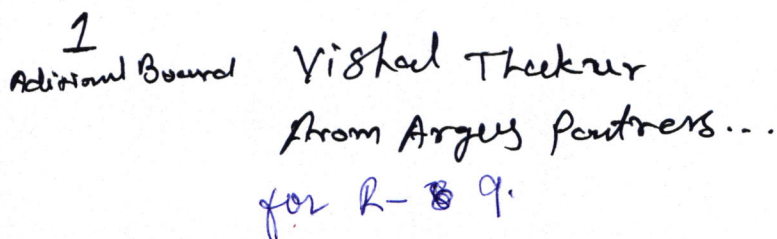 1
Aditional Board Vishal Thakur
from Argus Partners...
for R- 9.